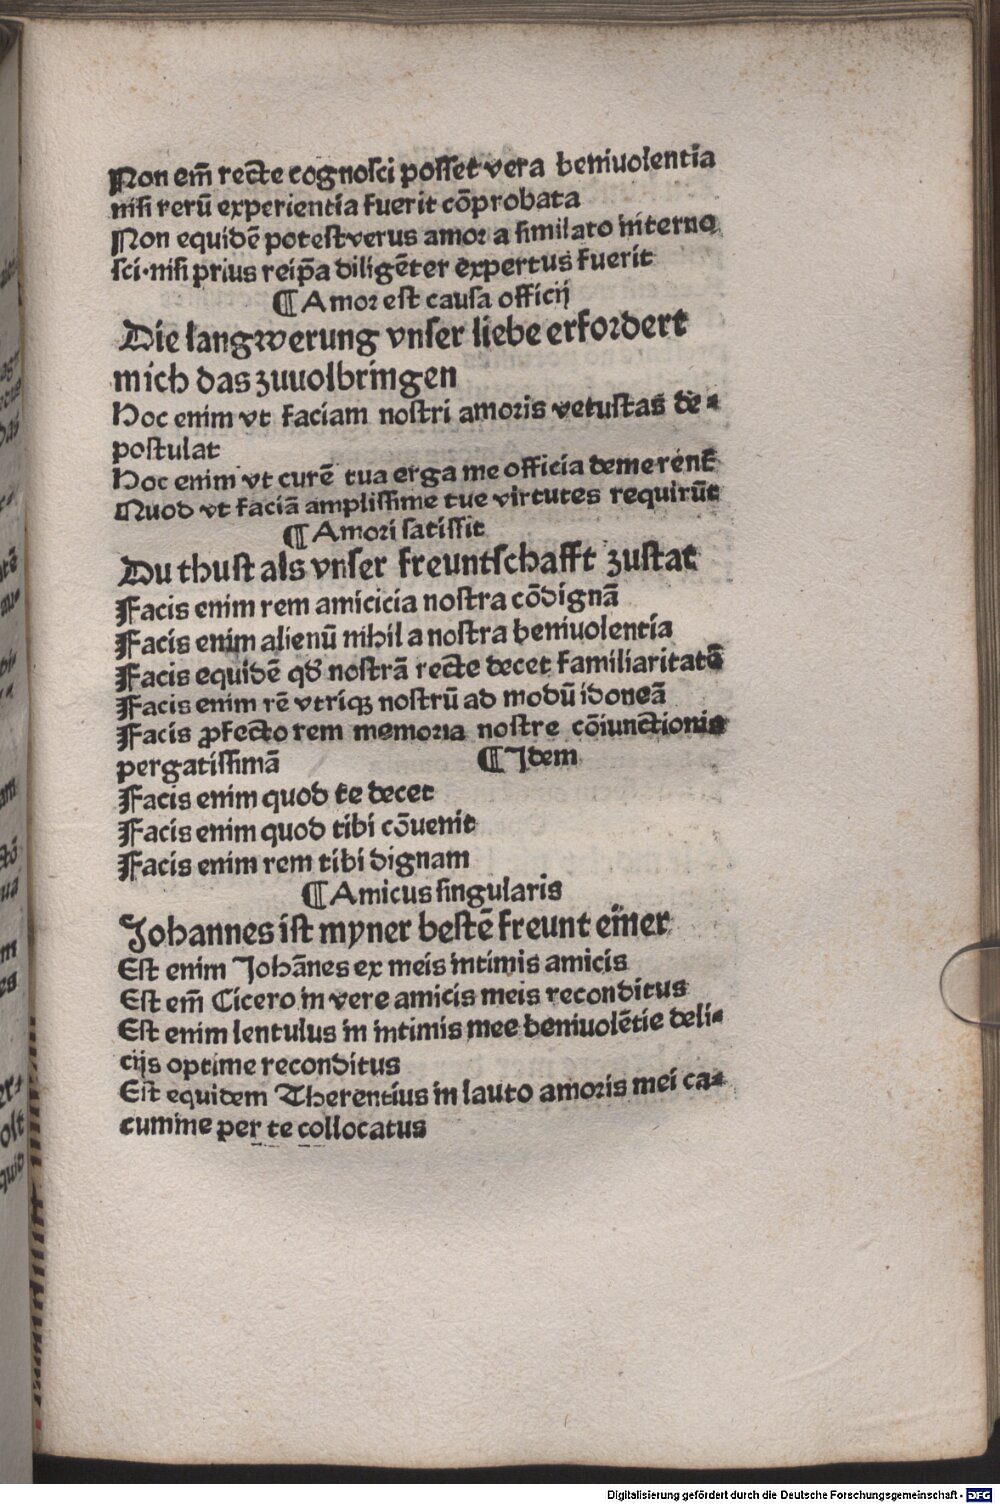 Non em̄ recte cognosci posset vera beniuolentia
nisi rerū experientia fuerit cōprobata
Non equidē potest verus amor a similato interno
sci·nisi prius reip̄a diligēter expertus fuerit
¶ Amor est causa officij
Die langwerung vnser liebe erfordert
mich das zuuolbringen
Hoc enim vt faciam nostri amoris vetustas de⸗
postulat
Hoc enim vt curē tua erga me officia demerent̄
Quod vt faciā amplissime tue virtutes requirūt
¶ Amori satisfit
Du thust als vnser freuntschafft zustat
Facis enim rem amicicia nostra cōdignā
Facis enim alienū nihil a nostra beniuolentia
Facis equidē qd̄ nostrā recte decet familiaritatē
Facis enim rē vtriqꝫ nostrū ad modū idoneā
Facis ꝓfecto rem memoria nostre cōiunctionis
pergatissimā ¶ Idem
Facis enim quod te decet
Facis enim quod tibi cōuenit
Facis enim rem tibi dignam
¶ Amicus singularis
Johannes ist myner bestē freunt einer
Est enim Johānes ex meis intimis amicis
Est em̄ Cicero in vere amicis meis reconditus
Est enim lentulus in intimis mee beniuolētie deli⸗
cijs optime reconditus
Est equidem Therentius in lauto amoris mei ca⸗
cumine per te collocatus
Digitalisierung gefördert durch die Deutsche Forschungsgemeinschaft - DFG